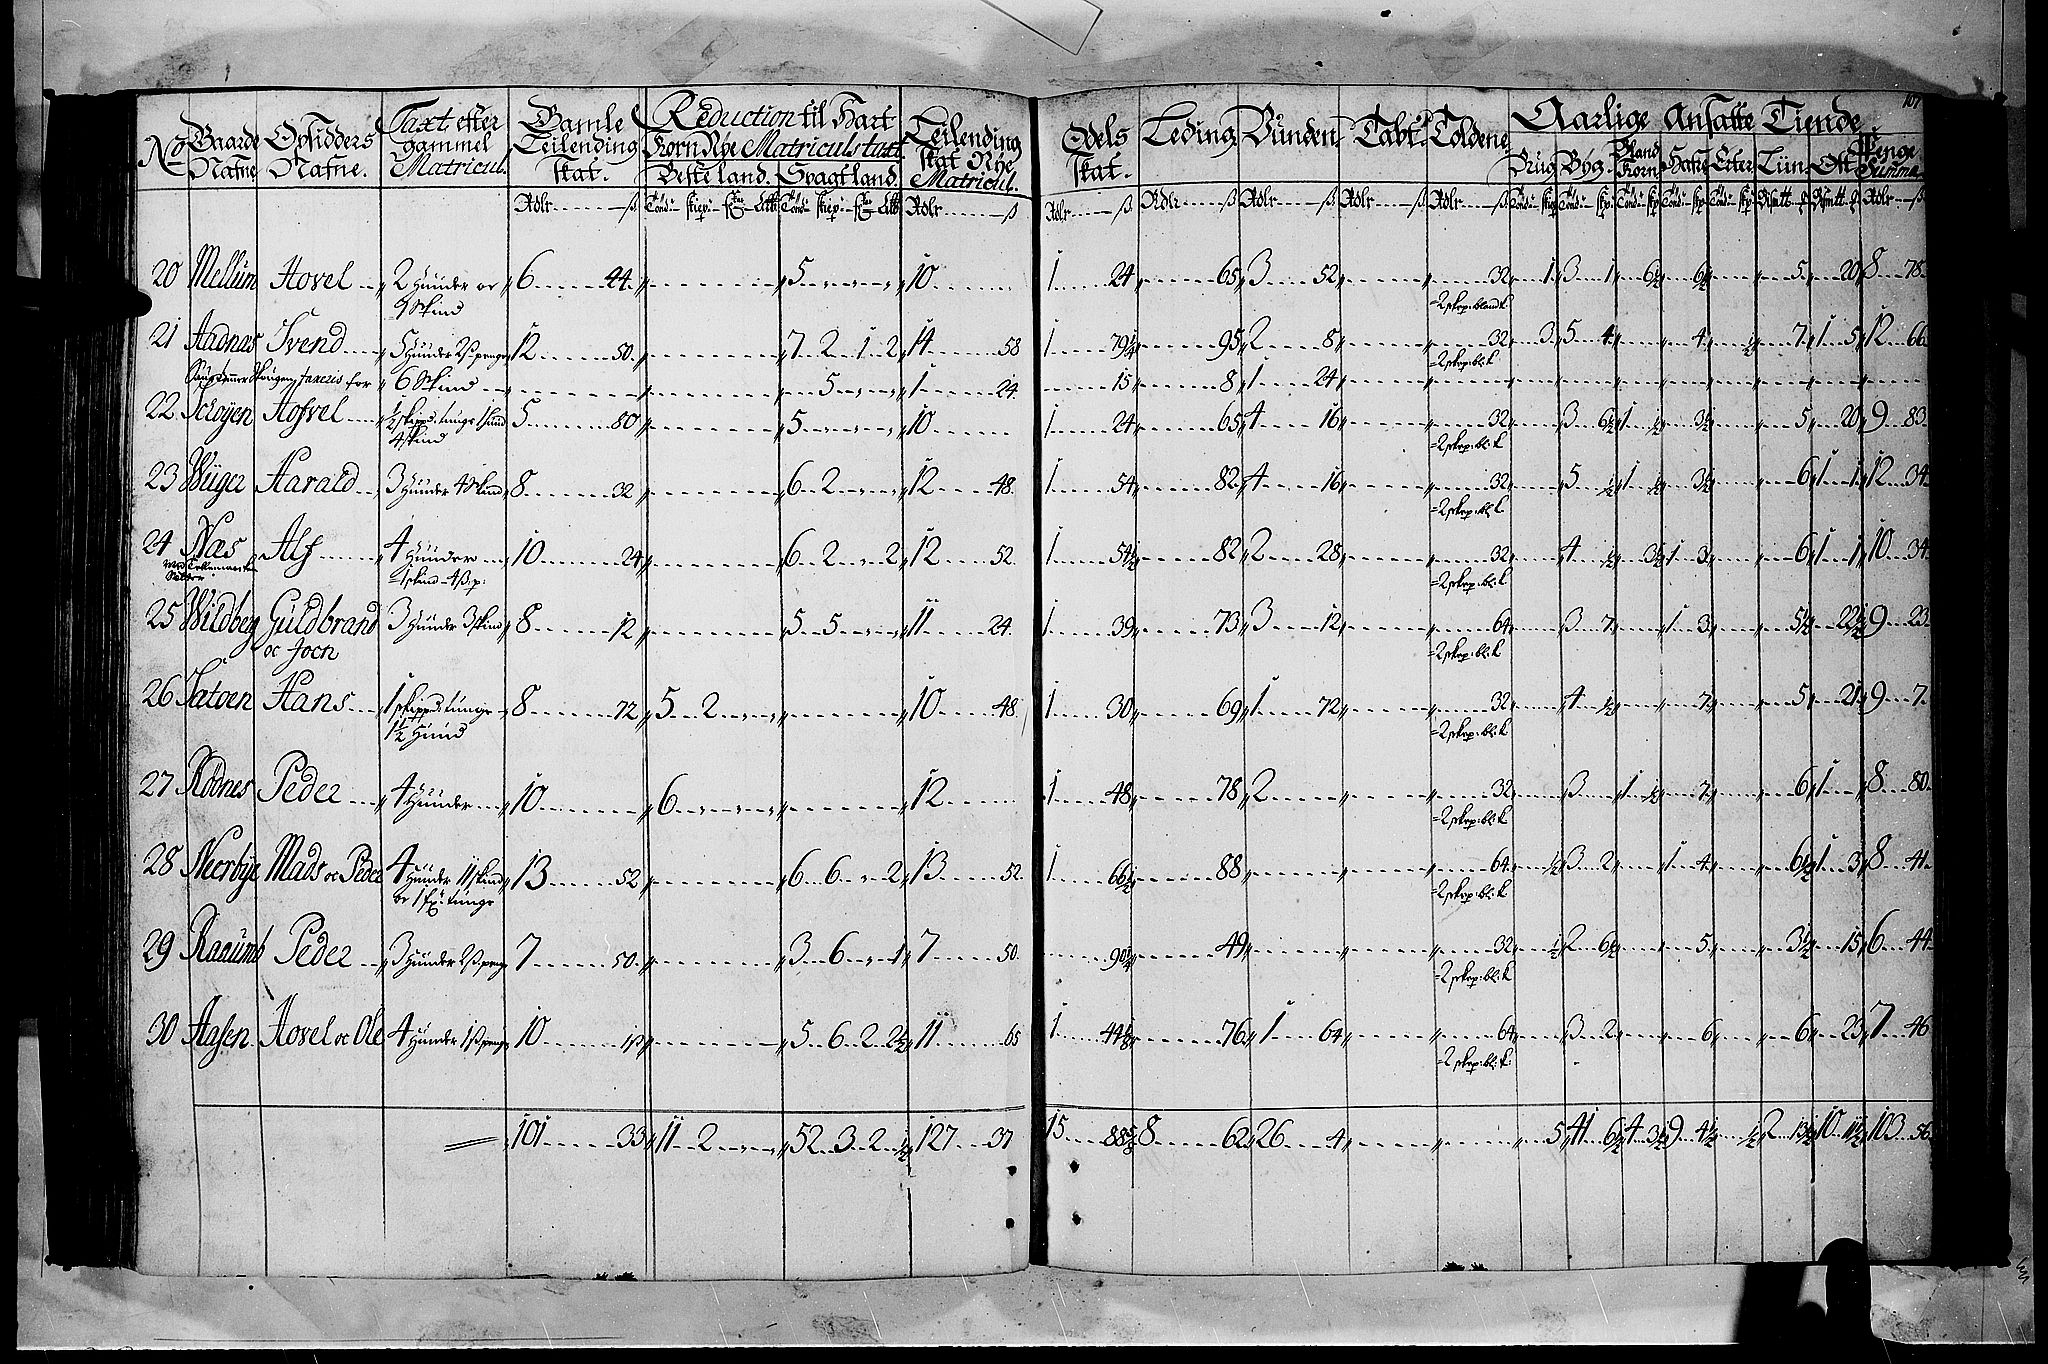 107
No Gaarde Opsidders Taxt efter Gamle Reduction til Hart Teilending Odels Leding Bunden Tabt Toldene Aarlige Ansatte Tiende
Nafne Nafne. gammel Teilending Korn Nye Matriculs tact. Skat Nye Skat. Rug Byg. Bland Hafre Erter Liin Ost Penge
Matricul. Skat. Beste land. Svagt land. Matricul. Korn Summa
Rdlr ß Rdlr ß Rdlr ß Rdlr ß Rdlr ß Rdlr ß Rdlr ß Rdlr ß
20 Mellum Hovel 2 Hunder oc 6 44 5 10 1 24 65 3 52 32 1 3 1 6½ 6½ 5 20 8 78
9 Skind =2 skep: bland k
21 Aadnas Svend 5 Hunder 2ß penge 12 50 7 2 1 2 14 58 1 79¼ 95 2 8 32 3 5 4 4 ½ 7 1 5 12 66
=2 skep: bl: k
for 6 Skind 5 1 24 15 8 1 24
22 Schøyen Hofvel ½ skippd: tunge 1 hund 5 80 5 10 1 24 65 4 16 32 3 6½ 1 ½ 3½ 5 20 9 83
4 skind =2 skep: bl: k
23 Weiger Harald 3 Hunder 4 Skind 8 32 6 2 12 48 1 54 82 4 16 32 5 ½ 1 ½ 3½ 6 1 1 12 34
=2 skep: bl: k
24 Næs Alf 4 Hundere 10 24 6 2 2 12 52 1 54½ 82 2 28 32 4 ½ 3½ 1 3 6 1 1 10 34
1 skind 4ß p: =2 skep: bl: k
25 Wildberg Guldbrand 3 Hunder 3 skind 8 12 5 5 11 24 1 39 73 3 12 64 3 7 1 3 5½ 22½ 9 23
oc Joen =2 skep: bl: k
26 Satoen Hans 1 skippd: tunge 8 72 5 2 10 48 1 30 69 1 72 32 4 ½ 7 5 21 9 7
1½ Hund =2 skep: bl: k
27 Rødnes Peder 4 Hunder 10 6 12 1 48 78 2 32 3 1 ½ 7 6 1 8 80
=2 skep: bl: k
28 Nørbye Mads oc Peder 4 Hunder 11 skind 13 52 6 6 2 13 52 1 66½ 88 64 ½ 3 2 1 4 6½ 1 3 8 41
oc 1 tunge =2 skep: bl: k
29 Raaumb Peder 3 Hunder 2ß peng 7 50 3 6 1 7 50 90¾ 49 32 ½ 2 6½ 5 3½ 15 6 44
=2 skep: bl: k
30 Aasen Hovel oc Ole 4 Hunder 1ß peng 10 5 6 2 2½ 11 65 1 44⅝ 76 1 64 64 3 2 6 6 23 7 46
=2 skep: bl: k
101 33 11 2 52 3 2 ½ 127 37 15 88⅝ 8 62 26 4 5 41 6½ 4 3½ 9 4½ ½ 2 13½ 10 11½ 103 56